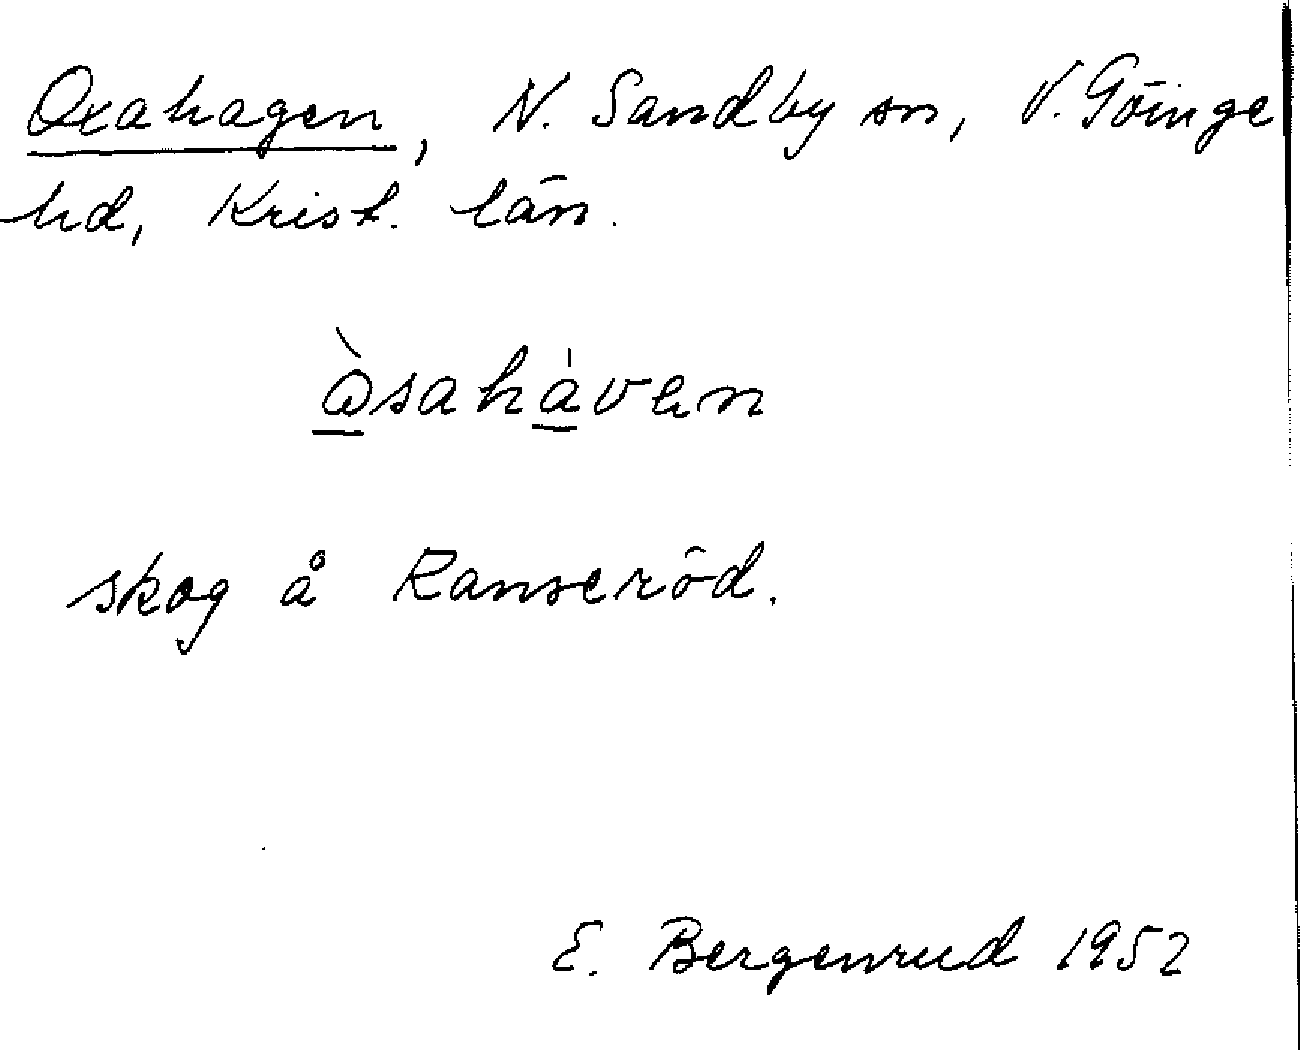 Oxahagen, N. Sandby sn, V. Göinge
hd, Krist. län.
ὼsahȧven
skog å Ranseröd.
E. Bergenrud 1952